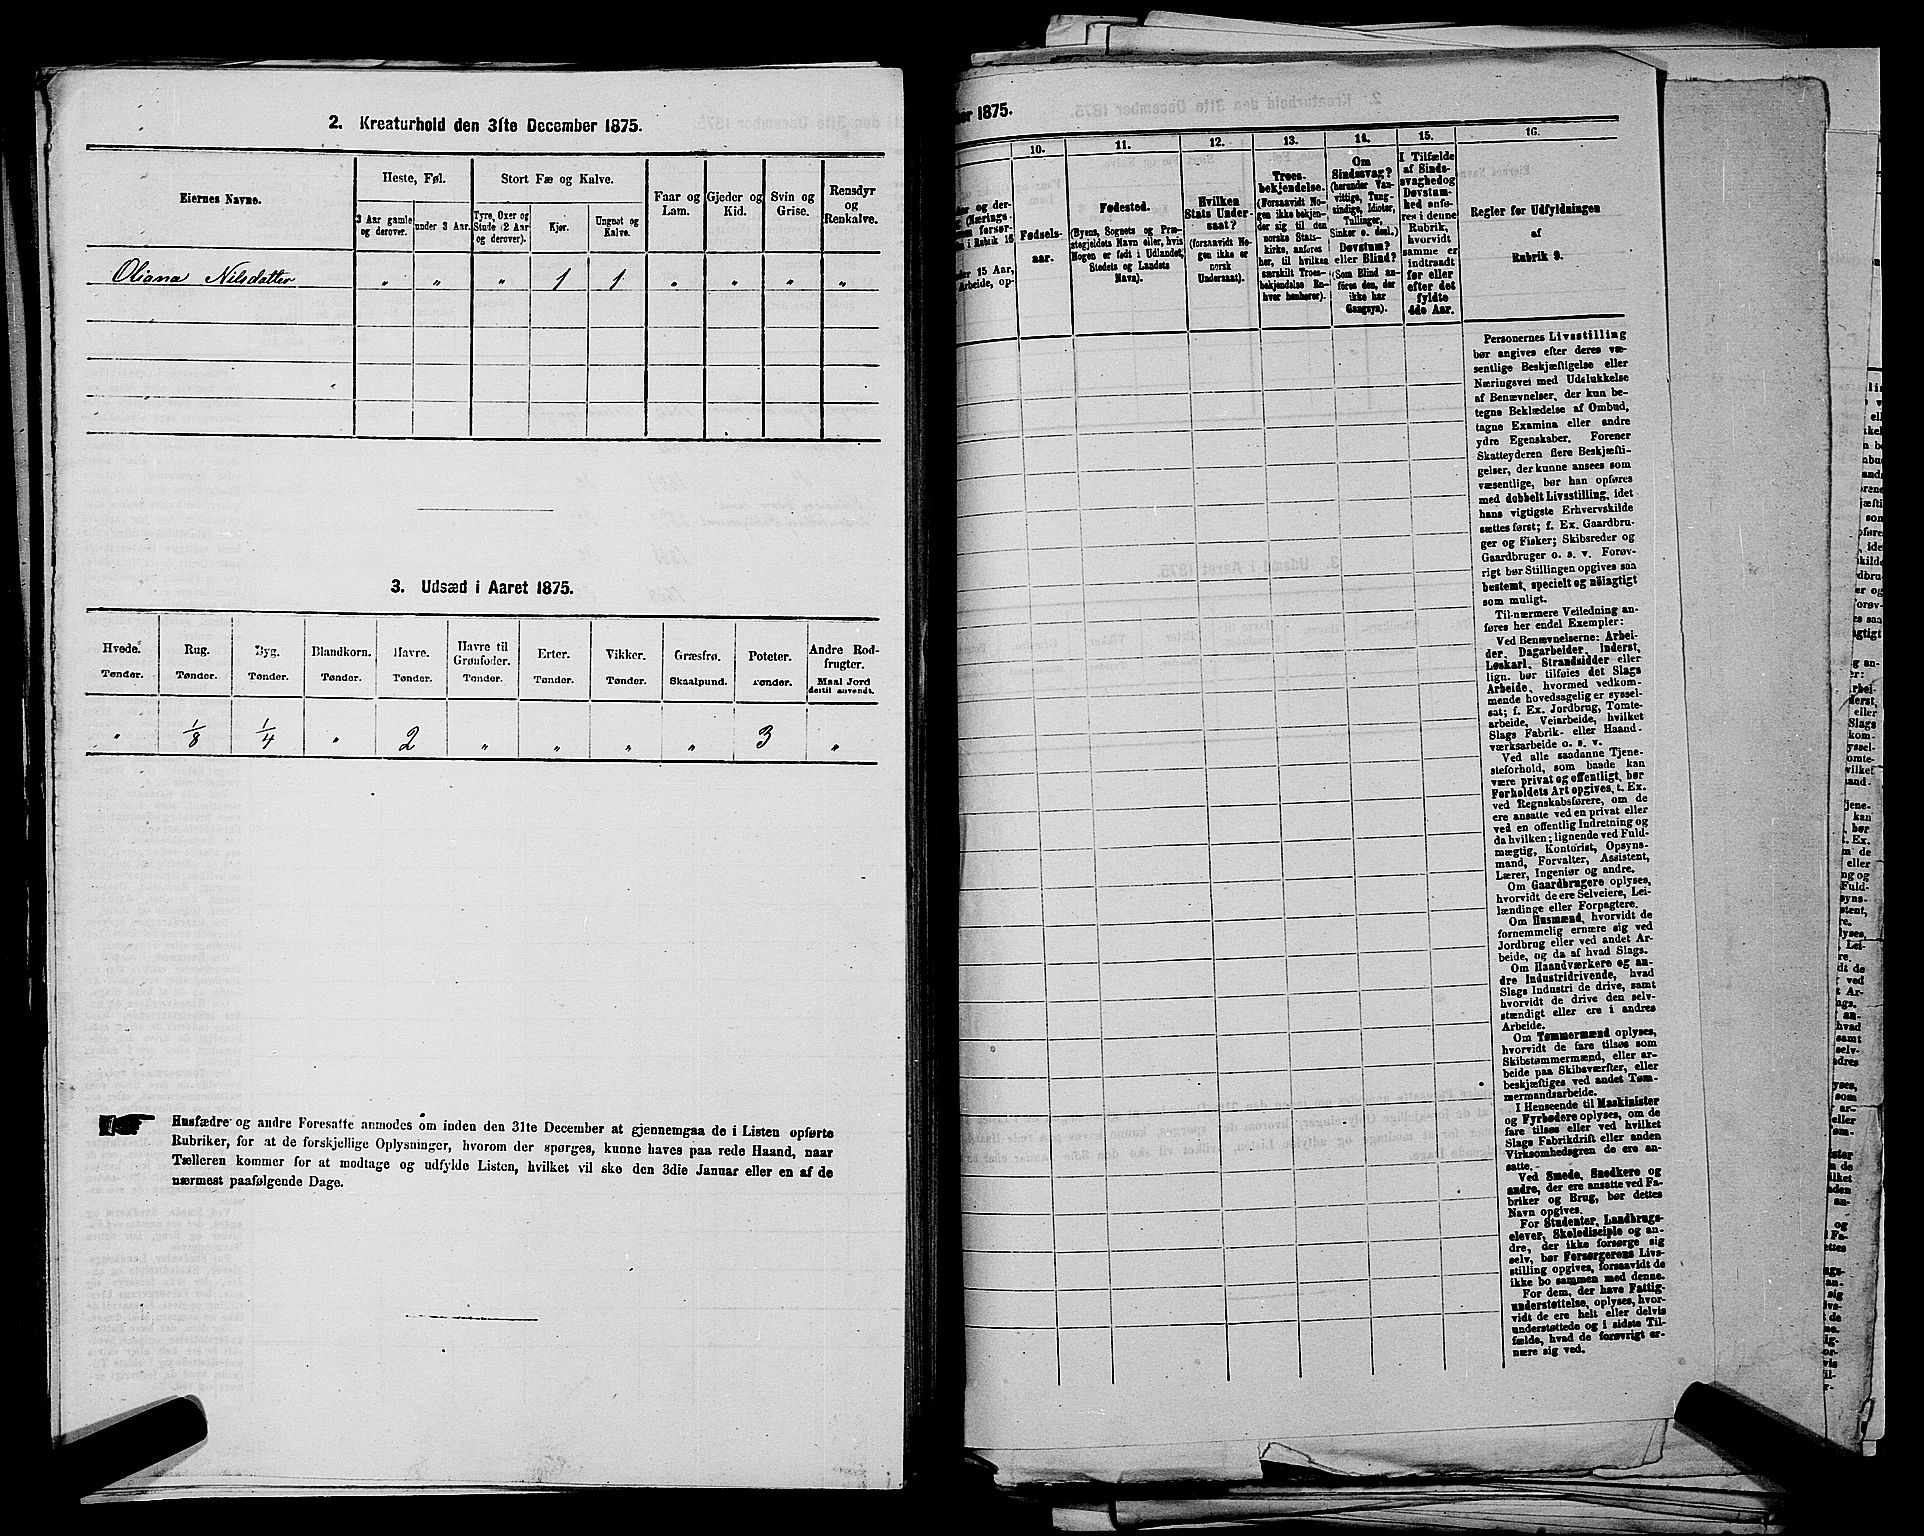 2. Kreaturhold den 31te December 1875.
Eiernes Navne.
Heste, Føl.
3 Aar gamle og derover.
under 3 Aar.
Stort Fæ og Kalve.
Tyre, Oxer og Stude (2 Aar og derover).
Kjør.
Ungnøt og Kalve.
Faar og Lam.
Gjeder og Kid.
Svin og Grise.
Rensdyr og Renkalve.
Oliana Nilsdatter " " " 1 1 " " " "
3. Udsæd i Aaret 1875.
Hvede. Rug. Byg. Blandkorn. Havre. Havre til Grønfoder. Erter. Vikker. Græsfrø. Poteter. Andre Rodfrugter.
Tønder. Tønder. Tønder. Tønder. Tønder. Tønder. Tønder. Tønder. Skaalpund. Tønder. Maal Jord dertil anvendt.
" 1/8 1/4 " 2 " " " " 3 "
Husfædre og andre Foresatte anmodes om inden den 31te December at gjennemgaa de i Listen opførte
Rubriker, for at de forskjellige Oplysninger, hvorom der spørges, kunne haves paa rede Haand, naar
Tælleren kommer for at modtage og udfylde Listen, hvilket vil ske den 3die Januar eller en af de
nærmest paafølgende Dage.
ber 1875.
10.
Fødsels-
aar.
11.
Fødested.
(Byens, Sognets og Præ-
stegjeldets Navn eller, hvis
Nogen er født i Udlandet,
Stedets og Landets
Navn).
12.
Hvilken
Stats Under-
saat?
(forsaavidt No-
gen ikke er
norsk
Undersaat).
13.
Troes-
bekjendelse.
(Forsaavidt No-
gen ikke bekjen-
der sig til den
norske Stats-
kirke, anføres
her, til hvilken
særskilt Troes-
bekjendelse En-
hver henhører).
14.
Om
Sindssvag?
(herunder Van-
vittige, Tung-
sindige, Idioter,
Tullinger,
Sinker o. desl.)
Døvstum?
eller Blind?
(Som Blind an-
føres den, der
ikke har
Gangsyn).
15.
I Tilfælde
af Sinds-
svaghed og
Døvstum-
hed anfø-
res i denne
Rubrik,
hvorvidt
samme er
indtraadt
før eller
efter det
fyldte
4de Aar.
16.
Regler for Udfyldningen
af
Rubrik 9.
Personernes Livsstilling
bør angives efter deres væ-
sentlige Beskjæftigelse eller
Næringsvei med Udelukkelse
af Benævnelser, der kun be-
tegne Beklædelse af Ombud,
tagne Examina eller andre
ydre Egenskaber. Forener
Skatteyderen flere Beskjæfti-
gelser, der kunne ansees som
væsentlige, bør han opføres
med dobbelt Livsstilling, idet
hans vigtigste Erhvervskilde
sættes først; f. Ex. Gaardbru-
ger og Fisker; Skibsreder og
Gaardbruger o. s. v. Forøv-
rigt bør Stillingen opgives saa
bestemt, specielt og nøiagtigt
som muligt.
Til nærmere Veiledning an-
føres her endel Exempler:
Ved Benævnelserne: Arbei-
der, Dagarbeider, Inderst,
Løskarl, Strandsidder eller
lign. bør tilføies det Slags
Arbeide, hvormed vedkom-
mende hovedsagelig er syssel-
sat; f. Ex. Jordbrug, Tomte-
arbeide, Veiarbeide, hvilket
Slags Fabrik- eller Haand-
værksarbeide o. s. v.
Ved alle saadanne Tjene-
steforhold, som baade kan
være privat og offentligt, bør
Forholdets Art opgives, f. Ex.
ved Regnskabsførere, om de
ere ansatte ved en privat eller
ved en offentlig Indretning og
da hvilken; lignende ved Fuld-
mægtig, Kontorist, Opsyns-
mand, Forvalter, Assistent,
Lærer, Ingeniør og andre.
Om Gaardbrugere oplyses,
hvorvidt de ere Selveiere, Lei-
lændinge eller Forpagtere.
Om Husmænd, hvorvidt de
fornemmelig ernære sig ved
Jordbrug eller ved andet Ar-
beide, og da af hvad Slags.
Om Haandværkere og an-
dre Industridrivende, hvad
Slags Industri de drive, samt
hvorvidt de drive den selv-
stændigt eller ere i andres
Arbeide.
Om Tømmermænd oplyses,
hvorvidt de fare tilsøs som
Skibstømmermænd, eller ar-
beide paa Skibsværfter, eller
beskjæftiges ved andet Tøm-
mermandsarbeide.
I Henseende til Maskinister
og Fyrbødere oplyses, om de
fare tilsøs eller ved hvilket
Slags Fabrikdrift eller anden
Virksomhedsgren de ere an-
satte.
Ved Smede, Snedkere og
andre, der ere ansatte ved Fa-
briker og Brug, bør dettes
Navn opgives.
For Studenter, Landbrugs-
elever, Skoledisciple og an-
dre, der ikke forsørge sig
selv, bør Forsørgerens Livs-
stilling opgives, forsaavidt de
ikke bo sammen med denne.
For dem, der have Fattig-
understøttelse, oplyses, hvor-
vidt de ere helt eller delvis
understøttede og i sidste Til-
fælde, hvad de forøvrigt er-
nære sig ved.